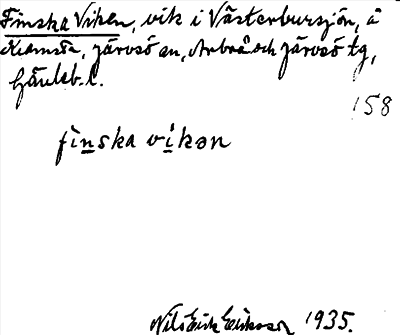 Finska Viken, vik i Västerbursjön, å
Kramsta, Järvsö sn, Arbrå och Järvsö tg,
Gävleb. l.
158
finska vikən
Nils Erik Eriksson 1935.